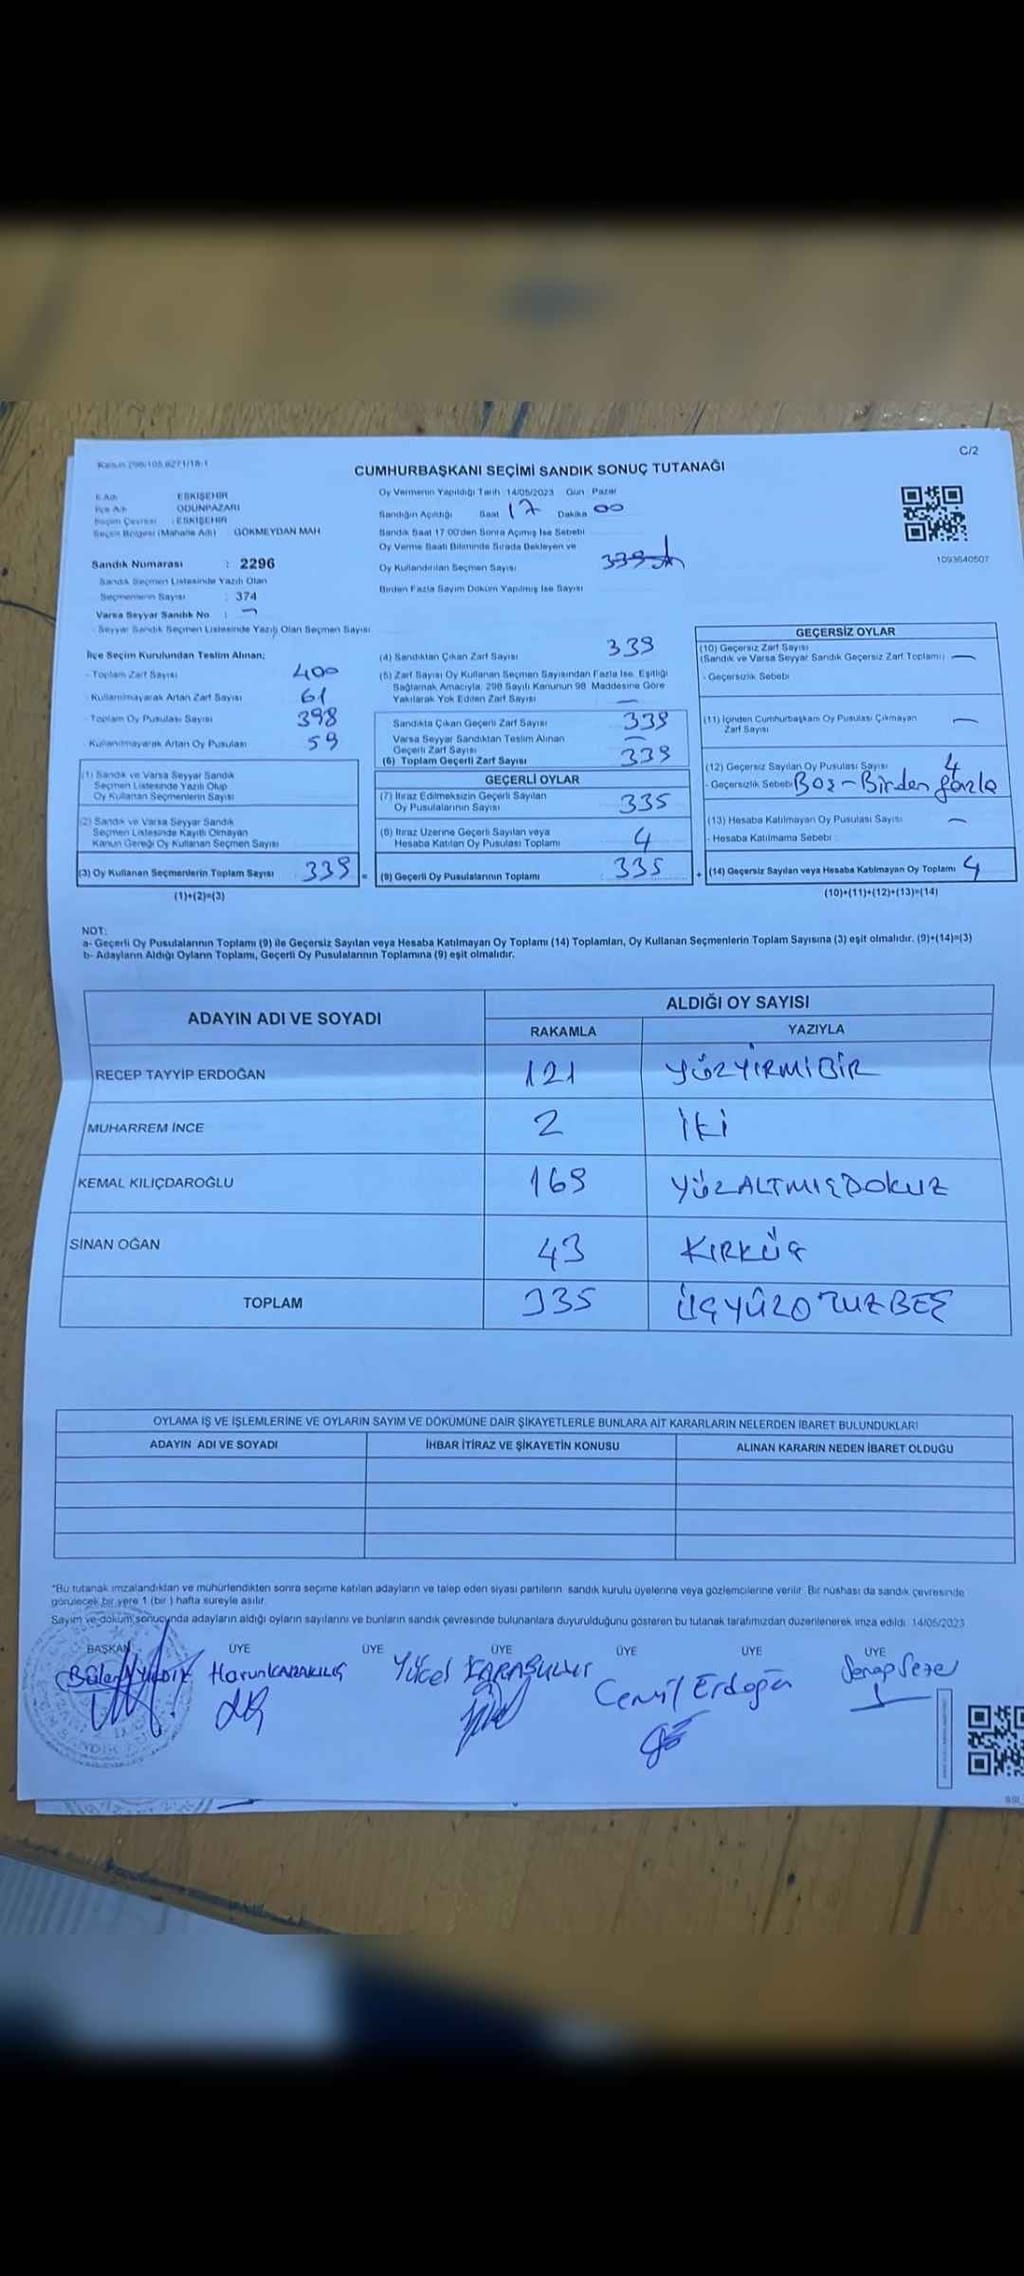 C/2
CUMHURBAŞKANI SEÇİMİ SANDIK SONUÇ TUTANAĞI
İl Adı : ESKİŞEHİR
İlçe Adı : ODUNPAZARI
Seçim Çevresi : ESKİŞEHİR
Seçim Bölgesi (Mahalle Adı) : GÖKMEYDAN MAH
Sandık Numarası : 2296
Sandık Seçmen Listesinde Yazılı Olan
Seçmenlerin Sayısı : 374
Varsa Seyyar Sandık No : -
- Seyyar Sandık Seçmen Listesinde Yazılı Olan Seçmen Sayısı
Oy Vermenin Yapıldığı Tarih 14/05/2023 Gün Pazar
Sandığın Açıldığı Saat 17 Dakika 00
Sandık Saat 17.00'den Sonra Açılmış İse Sebebi
Oy Verme Saati Bitiminde Sırada Bekleyen ve
Oy Kullandırılan Seçmen Sayısı 339
Birden Fazla Sayım Döküm Yapılmış İse Sayısı
1093640507
İlçe Seçim Kurulundan Teslim Alınan;
- Toplam Zarf Sayısı 400
- Kullanılmayarak Artan Zarf Sayısı 61
- Toplam Oy Pusulası Sayısı 398
- Kullanılmayarak Artan Oy Pusulası 59
(1) Sandık ve Varsa Seyyar Sandık
Seçmen Listesinde Yazılı Olup
Oy Kullanan Seçmenlerin Sayısı
(2) Sandık ve Varsa Seyyar Sandık
Seçmen Listesinde Kayıtlı Olmayan
Kanun Gereği Oy Kullanan Seçmen Sayısı
(3) Oy Kullanan Seçmenlerin Toplam Sayısı 339 =
(1)+(2)=(3)
(4) Sandıktan Çıkan Zarf Sayısı 339
(5) Zarf Sayısı Oy Kullanan Seçmen Sayısından Fazla İse, Eşitliği
Sağlamak Amacıyla, 298 Sayılı Kanunun 98. Maddesine Göre
Yakılarak Yok Edilen Zarf Sayısı -
Sandıkta Çıkan Geçerli Zarf Sayısı 339
Varsa Seyyar Sandıktan Teslim Alınan
Geçerli Zarf Sayısı -
(6) Toplam Geçerli Zarf Sayısı 339
GEÇERLİ OYLAR
(7) İtiraz Edilmeksizin Geçerli Sayılan
Oy Pusulalarının Sayısı 335
(8) İtiraz Üzerine Geçerli Sayılan veya
Hesaba Katılan Oy Pusulası Toplamı 4
(9) Geçerli Oy Pusulalarının Toplamı 335 +
GEÇERSİZ OYLAR
(10) Geçersiz Zarf Sayısı
(Sandık ve Varsa Seyyar Sandık Geçersiz Zarf Toplamı) -
- Geçersizlik Sebebi
(11) İçinden Cumhurbaşkanı Oy Pusulası Çıkmayan
Zarf Sayısı -
(12) Geçersiz Sayılan Oy Pusulası Sayısı 4
- Geçersizlik Sebebi Boş - Birden fazla
(13) Hesaba Katılmayan Oy Pusulası Sayısı -
- Hesaba Katılmama Sebebi
(14) Geçersiz Sayılan veya Hesaba Katılmayan Oy Toplamı 4
(10)+(11)+(12)+(13)=(14)
NOT:
a- Geçerli Oy Pusulalarının Toplamı (9) ile Geçersiz Sayılan veya Hesaba Katılmayan Oy Toplamı (14) Toplamları, Oy Kullanan Seçmenlerin Toplam Sayısına (3) eşit olmalıdır. (9)+(14)=(3)
b- Adayların Aldığı Oyların Toplamı, Geçerli Oy Pusulalarının Toplamına (9) eşit olmalıdır.
ADAYIN ADI VE SOYADI
ALDIĞI OY SAYISI
RAKAMLA YAZIYLA
RECEP TAYYİP ERDOĞAN 121 YÜZYİRMİBİR
MUHARREM İNCE 2 İKİ
KEMAL KILIÇDAROĞLU 169 YÜZALTMIŞDOKUZ
SİNAN OĞAN 43 KIRKÜÇ
TOPLAM 335 ÜÇYÜZOTUZBEŞ
OYLAMA İŞ VE İŞLEMLERİNE VE OYLARIN SAYIM VE DÖKÜMÜNE DAİR ŞİKAYETLERLE BUNLARA AİT KARARLARIN NELERDEN İBARET BULUNDUKLARI
ADAYIN ADI VE SOYADI İHBAR İTİRAZ VE ŞİKAYETİN KONUSU ALINAN KARARIN NEDEN İBARET OLDUĞU
*Bu tutanak imzalandıktan ve mühürlendikten sonra seçime katılan adayların ve talep eden siyasi partilerin sandık kurulu üyelerine veya gözlemcilerine verilir. Bir nüshası da sandık çevresinde
görülecek bir yere 1 (bir) hafta süreyle asılır.
Sayım ve döküm sonucunda adayların aldığı oyların sayılarını ve bunların sandık çevresinde bulunanlara duyurulduğunu gösteren bu tutanak tarafımızdan düzenlenerek imza edildi. 14/05/2023
BAŞKAN ÜYE ÜYE ÜYE ÜYE ÜYE ÜYE
Harun KARAKILIÇ Yücel KARABULUT Cemil Erdoğan